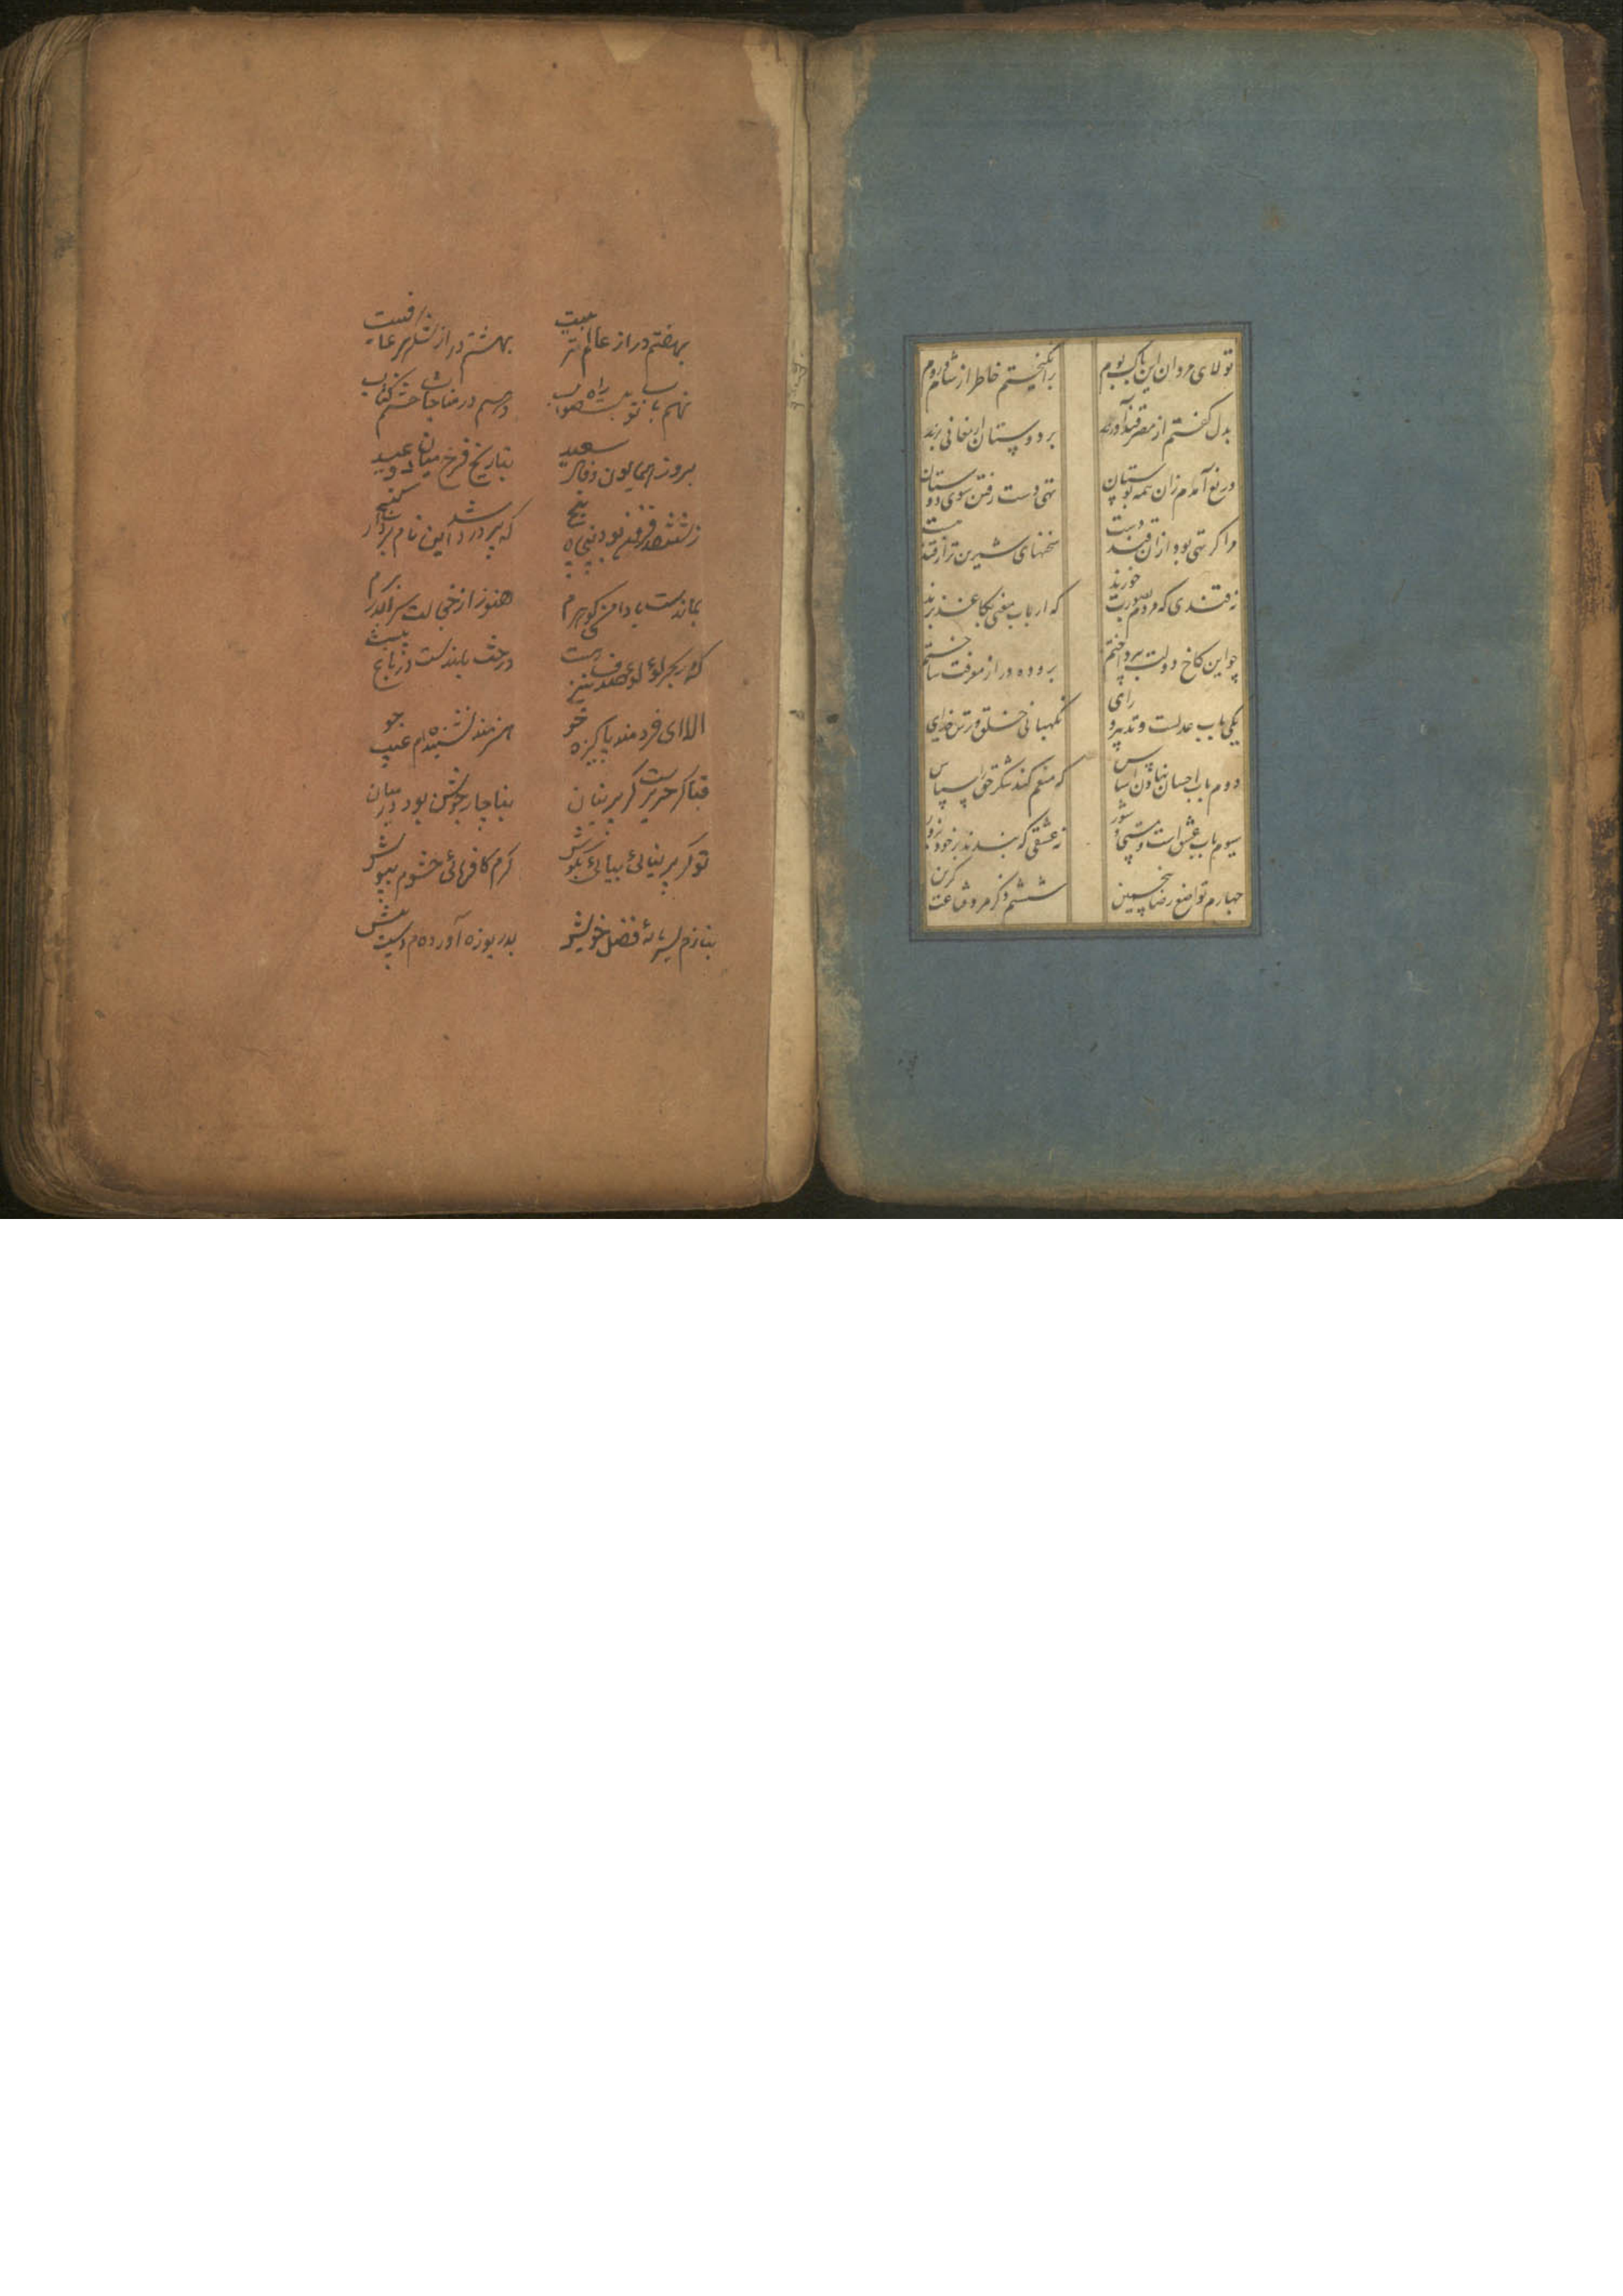 تولای مردان این پاک بوم برانگیختم خاطر از شام و روم
بدل گفتم از مصر قند آورند بر دوستان ارمغانی برند
دریغ آمدم زان همه بوستان تهی دست رفتن سوی دوستان
مرا گر تهی بود ازان قند دست سخنهای شیرین‌تر از قند هست
نه قندی که مردم بصورت خورند که ارباب معنی بکاغذ برند
چو این کاخ دولت بپرداختم برو ده در از معرفت ساختم
یکی باب عدلست و تدبیر و رای نگهبانی خلق و ترس خدای
دوم باب احسان نهادن اساس که منعم کند شکر حق را سپاس
سیوم باب عشق است و مستی و شور نه عشقی که بندند بر خود بزور
چهارم تواضع رضا پنجمین ششم ذکر مرد قناعت گزین
بهفتم در از عالم تربیت بهشتم در از شکر بر عافیت
نهم باب توبه است راه صواب دهم در مناجات ختم کتاب
بروز همایون و فال سعید بتاریخ فرخ میان دو عید
ز ششصد فزون بود پنجاه پنج که پر در شد این نام بردار گنج
بماندست با دامنی گوهرم هنوز از خجالت سر اندر برم
که در بحر لؤلؤ صدف نیز هست درخت بلندست در باغ پست
الا ای خردمند پاکیزه خو هنرمند نشنیده‌ام عیب جو
قبا گر حریرست گر پرنیان بناچار حشوش بود در میان
تو گر پرنیانی نیابی مکوش کرم کار فرمائی حشوم بپوش
ننازم بسرمایهٔ فضل خویش بدریوزه آورده‌ام دست پیش